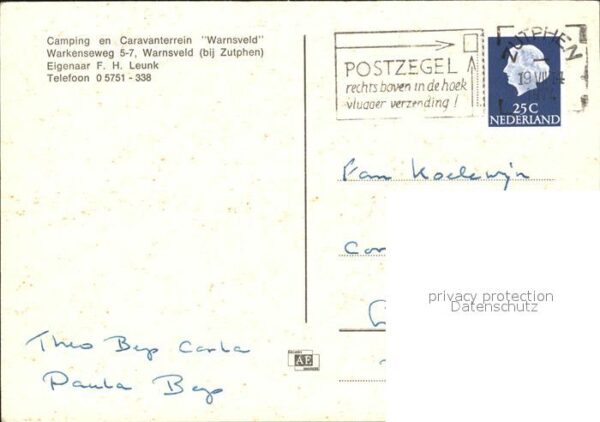 Camping en Caravanterrein "Warnsveld"
Warkenseweg 5-7, Warnsveld (bij Zutphen)
Eigenaar F. H. Leunk
Telefoon 0 5751 - 338
POSTZEGEL
rechts boven in de hoek
vlugger verzending!
ZUTPHEN
19 VII 14
1974
25 C
NEDERLAND
Fam Koelewijn
privacy protection
Datenschutz
Theo Bep Carla
Paula Bep
AE